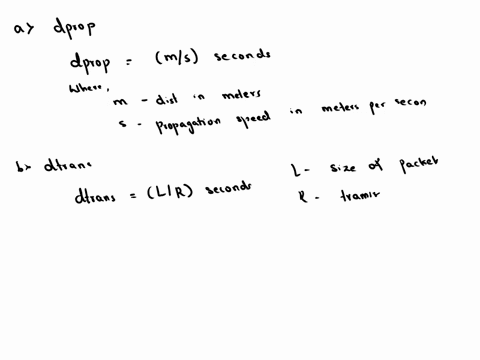 a> dprop
dprop = (m/s) seconds
where,
m - dist in meters
s - propagation speed in meters per secon
b> dtrans
dtrans = (L/R) seconds
L - size of packet
R - tramis